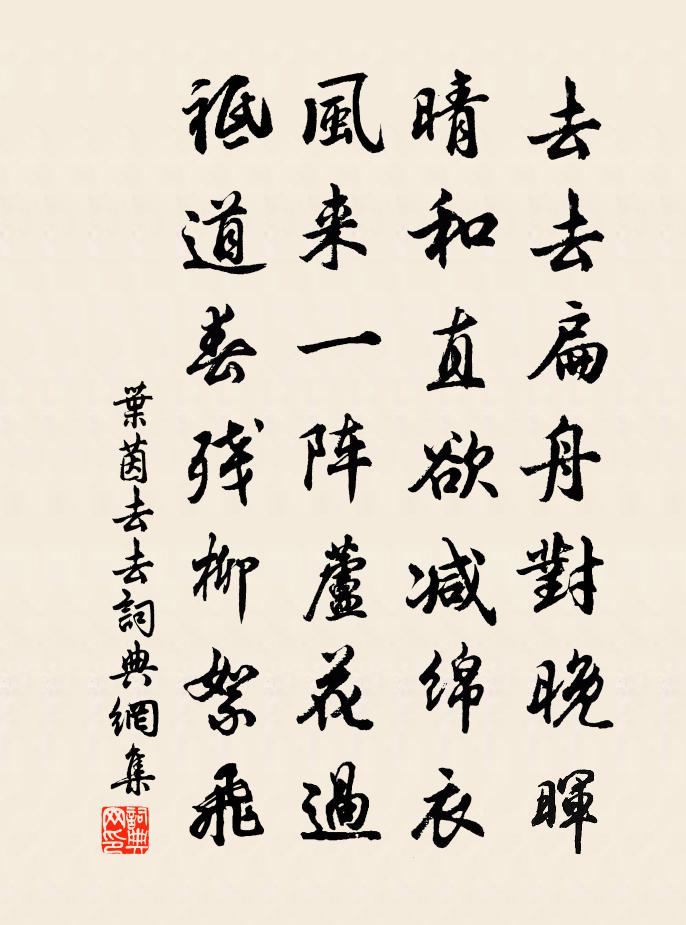 去去扁舟對晚暉
晴和直欲减绵衣
風来一阵蘆花過
祗道春残柳絮飛
葉茵去去詞典網集
詞典網印